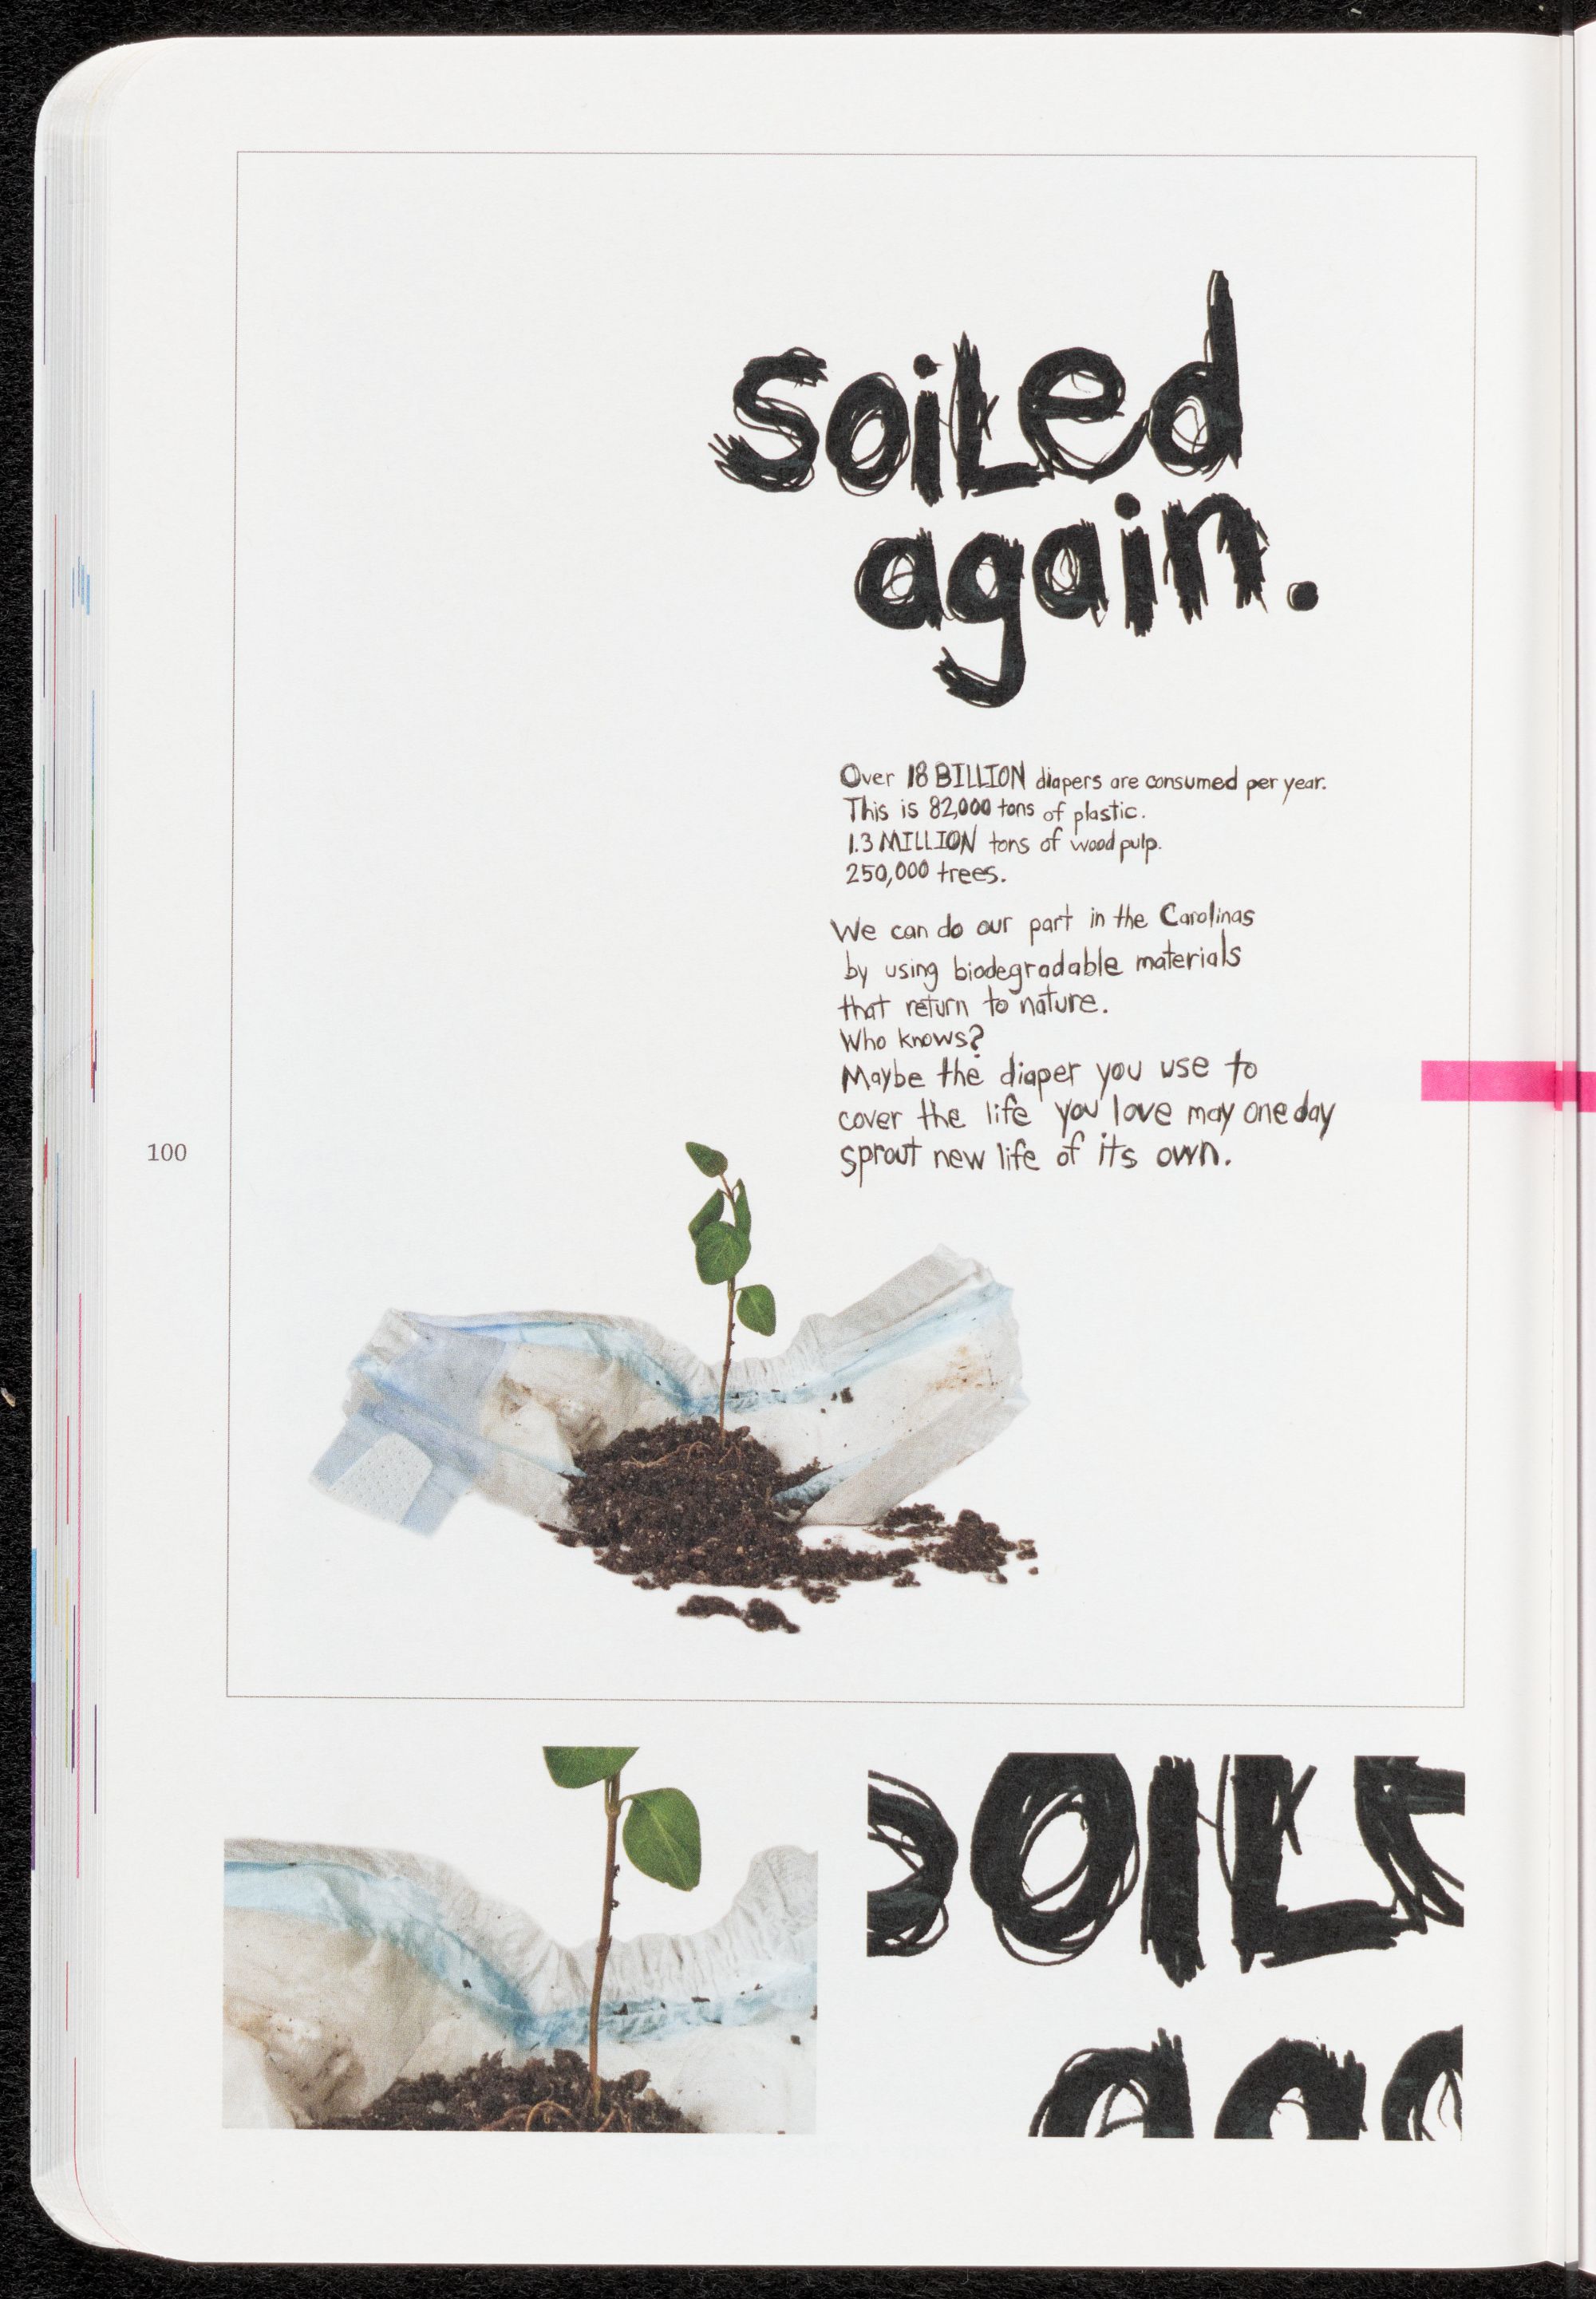 soiled
again.
Over 18 BILLION diapers are consumed per year.
This is 82,000 tons of plastic.
1.3 MILLION tons of wood pulp.
250,000 trees.
We can do our part in the Carolinas
by using biodegradable materials
that return to nature.
Who knows?
Maybe the diaper you use to
cover the life you love may one day
sprout new life of its own.
100
soile
aga